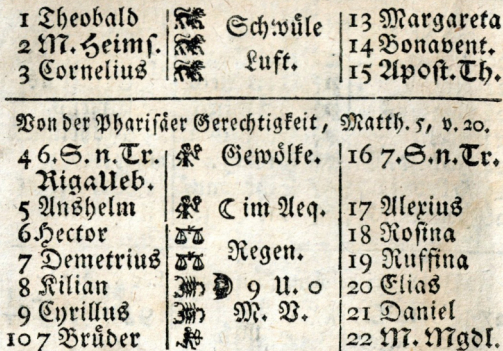 1 Theobald Schwüle 13 Margareta
2 M. Heims. Luft. 14 Bonavent.
3 Cornelius 15 Apost. Th.
Von der Pharisäer Gerechtigkeit, Matth. 5, v. 20.
4 6. S. n. Tr. Gewölke. 16 7. S. n. Tr.
Riga Ueb.
5 Anshelm ☾ im Aeq. 17 Alexius
6 Hector Regen. 18 Rosina
7 Demetrius 19 Ruffina
8 Kilian 9 U. 0 20 Elias
9 Cyrillus M. V. 21 Daniel
10 7 Brüder 22 M. Mgdl.